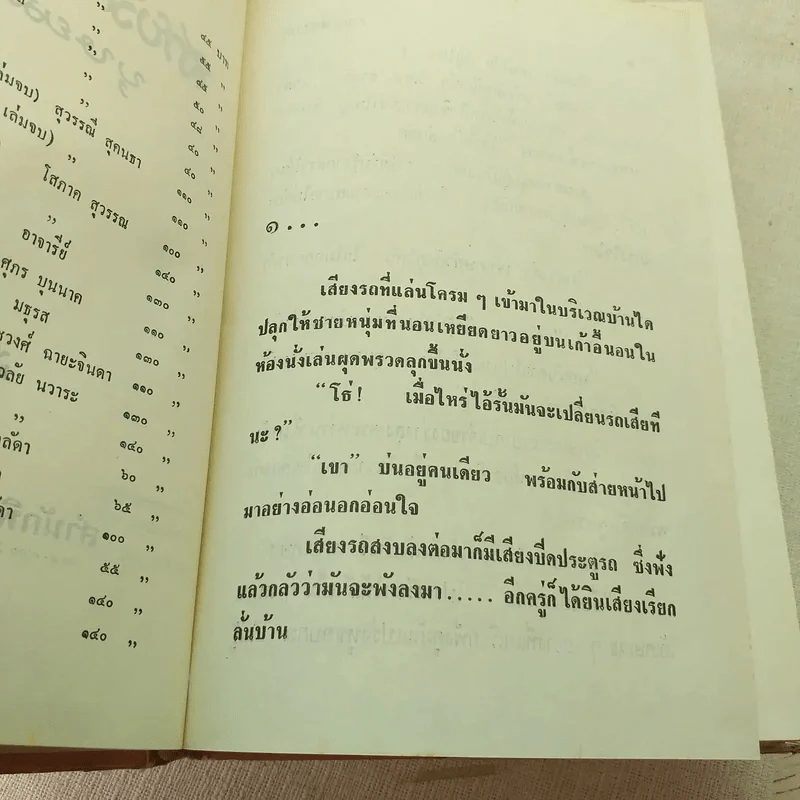 ๔๕ บาท
” ๔๕ ”
” ๕๐ ”
เล่มจบ) สุวรรณี สุคนธา ๔๘ ”
เล่มจบ) ” ๔๐ ”
๔๐ ”
โสภาค สุวรรณ ๑๑๐ ”
” ๑๑๐ ”
อาจารีย์ ๑๐๐ ”
ศุภร บุนนาค ๑๔๐ ”
มธุรส ๑๓๐ ”
วงศ์ ฉายะจินดา ๑๑๐ ”
วลัย นวาระ ๑๓๐ ”
” ๑๑๐ ”
๑๓๐ ”
๑๔๐ ”
๖๐ ”
๖๕ ”
๑๐๐ ”
๕๕ ”
๑๔๐ ”
๑๔๐ ”
๑...
เสียงรถที่แล่นโครม ๆ เข้ามาในบริเวณบ้านได
ปลุกให้ชายหนุ่มที่นอนเหยียดยาวอยู่บนเก้าอี้นอนใน
ห้องนั่งเล่นผุดพรวดลุกขึ้นนั่ง
“โธ่! เมื่อไหร่ไอ้รั้นมันจะเปลี่ยนรถเสียที
นะ?”
“เขา” บ่นอยู่คนเดียว พร้อมกับส่ายหน้าไป
มาอย่างอ่อนอกอ่อนใจ
เสียงรถสงบลงต่อมาก็มีเสียงปิดประตูรถ ซึ่งฟัง
แล้วกลัวว่ามันจะพังลงมา..... อีกครู่ก็ได้ยินเสียงเรียก
ลั่นบ้าน